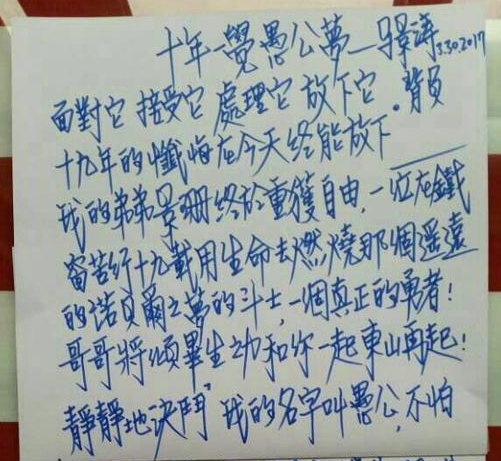 十年一覺愚公夢—景濤 3.30.2017
面對它 接受它 處理它 放下它。背負
十九年的懺悔在今天终能放下
我的弟弟景珊终於重獲自由,一位在鐵
窗苦行十九載用生命去燃燒那個遥遠
的諾貝爾之夢的斗士,一個真正的勇者!
哥哥將傾畢生力和你一起東山再起!
靜靜地決鬥" 我的名字叫愚公,不怕